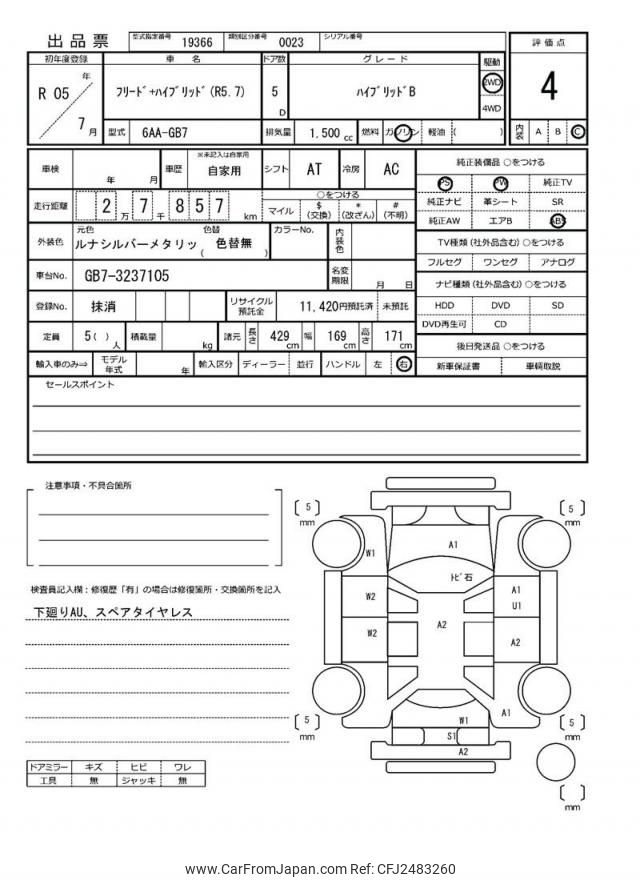 出品票
型式指定番号 19366 類別区分番号 0023 シリアル番号
初年度登録 車名 ドア数 グレード 駆動 評価点
R 05 年 7 月
フリード+ハイブリッド(R5.7) 5 D ハイブリッドB 2WD 4WD
4
型式 6AA-GB7 排気量 1.500 cc 燃料 ガソリン 軽油 ( )
内装 A B C
車検 年 月 車歴 ※未記入は自家用 自家用 シフト AT 冷房 AC
純正装備品 ○をつける
PS PW 純正TV
純正ナビ 革シート SR
純正AW エアB ABS
走行距離 2 万 7 千 8 5 7 km
○をつける
マイル $(交換) *(改ざん) #(不明)
外装色 元色 色替 ルナシルバーメタリッ ( 色替無 ) カラーNo. 内装色
TV種類(社外品含む)○をつける
フルセグ ワンセグ アナログ
車台No. GB7-3237105 名変期限 月 日
ナビ種類(社外品含む)○をつける
HDD DVD SD
DVD再生可 CD
登録No. 抹消 リサイクル預託金 11,420円預託済 未預託
定員 5 ( ) 人 積載量 kg 諸元 長さ 429 cm 幅 169 cm 高さ 171 cm
後日発送品 ○をつける
新車保証書 車輌取説
輸入車のみ⇒ モデル年式 年 輸入区分 ディーラー 並行 ハンドル 左 右
セールスポイント
注意事項・不具合箇所
検査員記入欄:修復歴「有」の場合は修復箇所・交換箇所を記入
下廻りAU、スペアタイヤレス
ドアミラー キズ ヒビ ワレ
工具 無 ジャッキ 無
5 mm
5 mm
W1
A1
トビ石
W2
A1
U1
W2
A2
A2
A1
W1
S1
A2
5 mm
5 mm
mm
www.CarFromJapan.com Ref: CFJ2483260